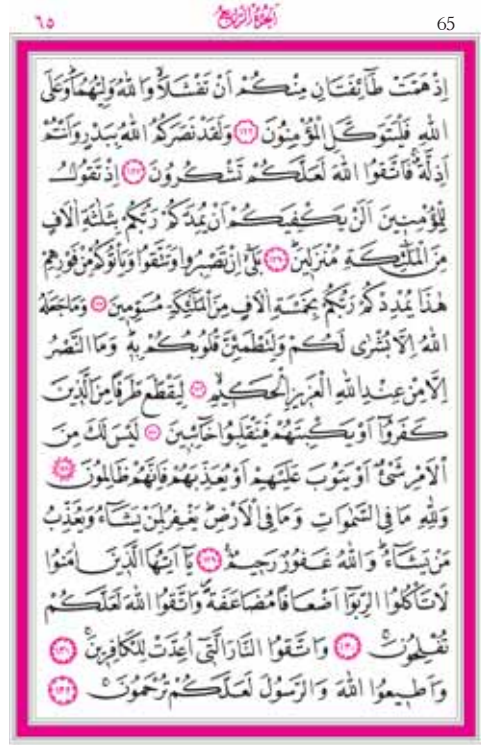 ٦٥ اَلْجُزْءُ الرَّابِعُ 65
اِذْ هَمَّتْ طَٓائِفَتَانِ مِنْكُمْ اَنْ تَفْشَلَاۙ وَاللّٰهُ وَلِيُّهُمَاۜ وَعَلَى
اللّٰهِ فَلْيَتَوَكَّلِ الْمُؤْمِنُونَ ﴿١٢٢﴾ وَلَقَدْ نَصَرَكُمُ اللّٰهُ بِبَدْرٍ وَاَنْتُمْ
اَذِلَّةٌۚ فَاتَّقُوا اللّٰهَ لَعَلَّكُمْ تَشْكُرُونَ ﴿١٢٣﴾ اِذْ تَقُولُ
لِلْمُؤْمِن۪ينَ اَلَنْ يَكْفِيَكُمْ اَنْ يُمِدَّكُمْ رَبُّكُمْ بِثَلٰثَةِ اٰلَافٍ
مِنَ الْمَلٰٓئِكَةِ مُنْزَل۪ينَۜ ﴿١٢٤﴾ بَلٰٓىۙ اِنْ تَصْبِرُوا وَتَتَّقُوا وَيَأْتُوكُمْ مِنْ فَوْرِهِمْ
هٰذَا يُمْدِدْكُمْ رَبُّكُمْ بِخَمْسَةِ اٰلَافٍ مِنَ الْمَلٰٓئِكَةِ مُسَوِّم۪ينَ ﴿١٢٥﴾ وَمَا جَعَلَهُ
اللّٰهُ اِلَّا بُشْرٰى لَكُمْ وَلِتَطْمَئِنَّ قُلُوبُكُمْ بِه۪ۜ وَمَا النَّصْرُ
اِلَّا مِنْ عِنْدِ اللّٰهِ الْعَز۪يزِ الْحَك۪يمِۙ ﴿١٢٦﴾ لِيَقْطَعَ طَرَفًا مِنَ الَّذ۪ينَ
كَفَرُٓوا اَوْ يَكْبِتَهُمْ فَيَنْقَلِبُوا خَٓائِب۪ينَ ﴿١٢٧﴾ لَيْسَ لَكَ مِنَ
الْاَمْرِ شَيْءٌ اَوْ يَتُوبَ عَلَيْهِمْ اَوْ يُعَذِّبَهُمْ فَاِنَّهُمْ ظَالِمُونَ ﴿١٢٨﴾
وَلِلّٰهِ مَا فِي السَّمٰوَاتِ وَمَا فِي الْاَرْضِۜ يَغْفِرُ لِمَنْ يَشَٓاءُ وَيُعَذِّبُ
مَنْ يَشَٓاءُۜ وَاللّٰهُ غَفُورٌ رَح۪يمٌ۟ ﴿١٢٩﴾ يَٓا اَيُّهَا الَّذ۪ينَ اٰمَنُوا
لَا تَأْكُلُوا الرِّبٰٓوا اَضْعَافًا مُضَاعَفَةًۖ وَاتَّقُوا اللّٰهَ لَعَلَّكُمْ
تُفْلِحُونَۚ ﴿١٣٠﴾ وَاتَّقُوا النَّارَ الَّت۪ٓي اُعِدَّتْ لِلْكَافِر۪ينَۚ ﴿١٣١﴾
وَاَط۪يعُوا اللّٰهَ وَالرَّسُولَ لَعَلَّكُمْ تُرْحَمُونَۚ ﴿١٣٢﴾